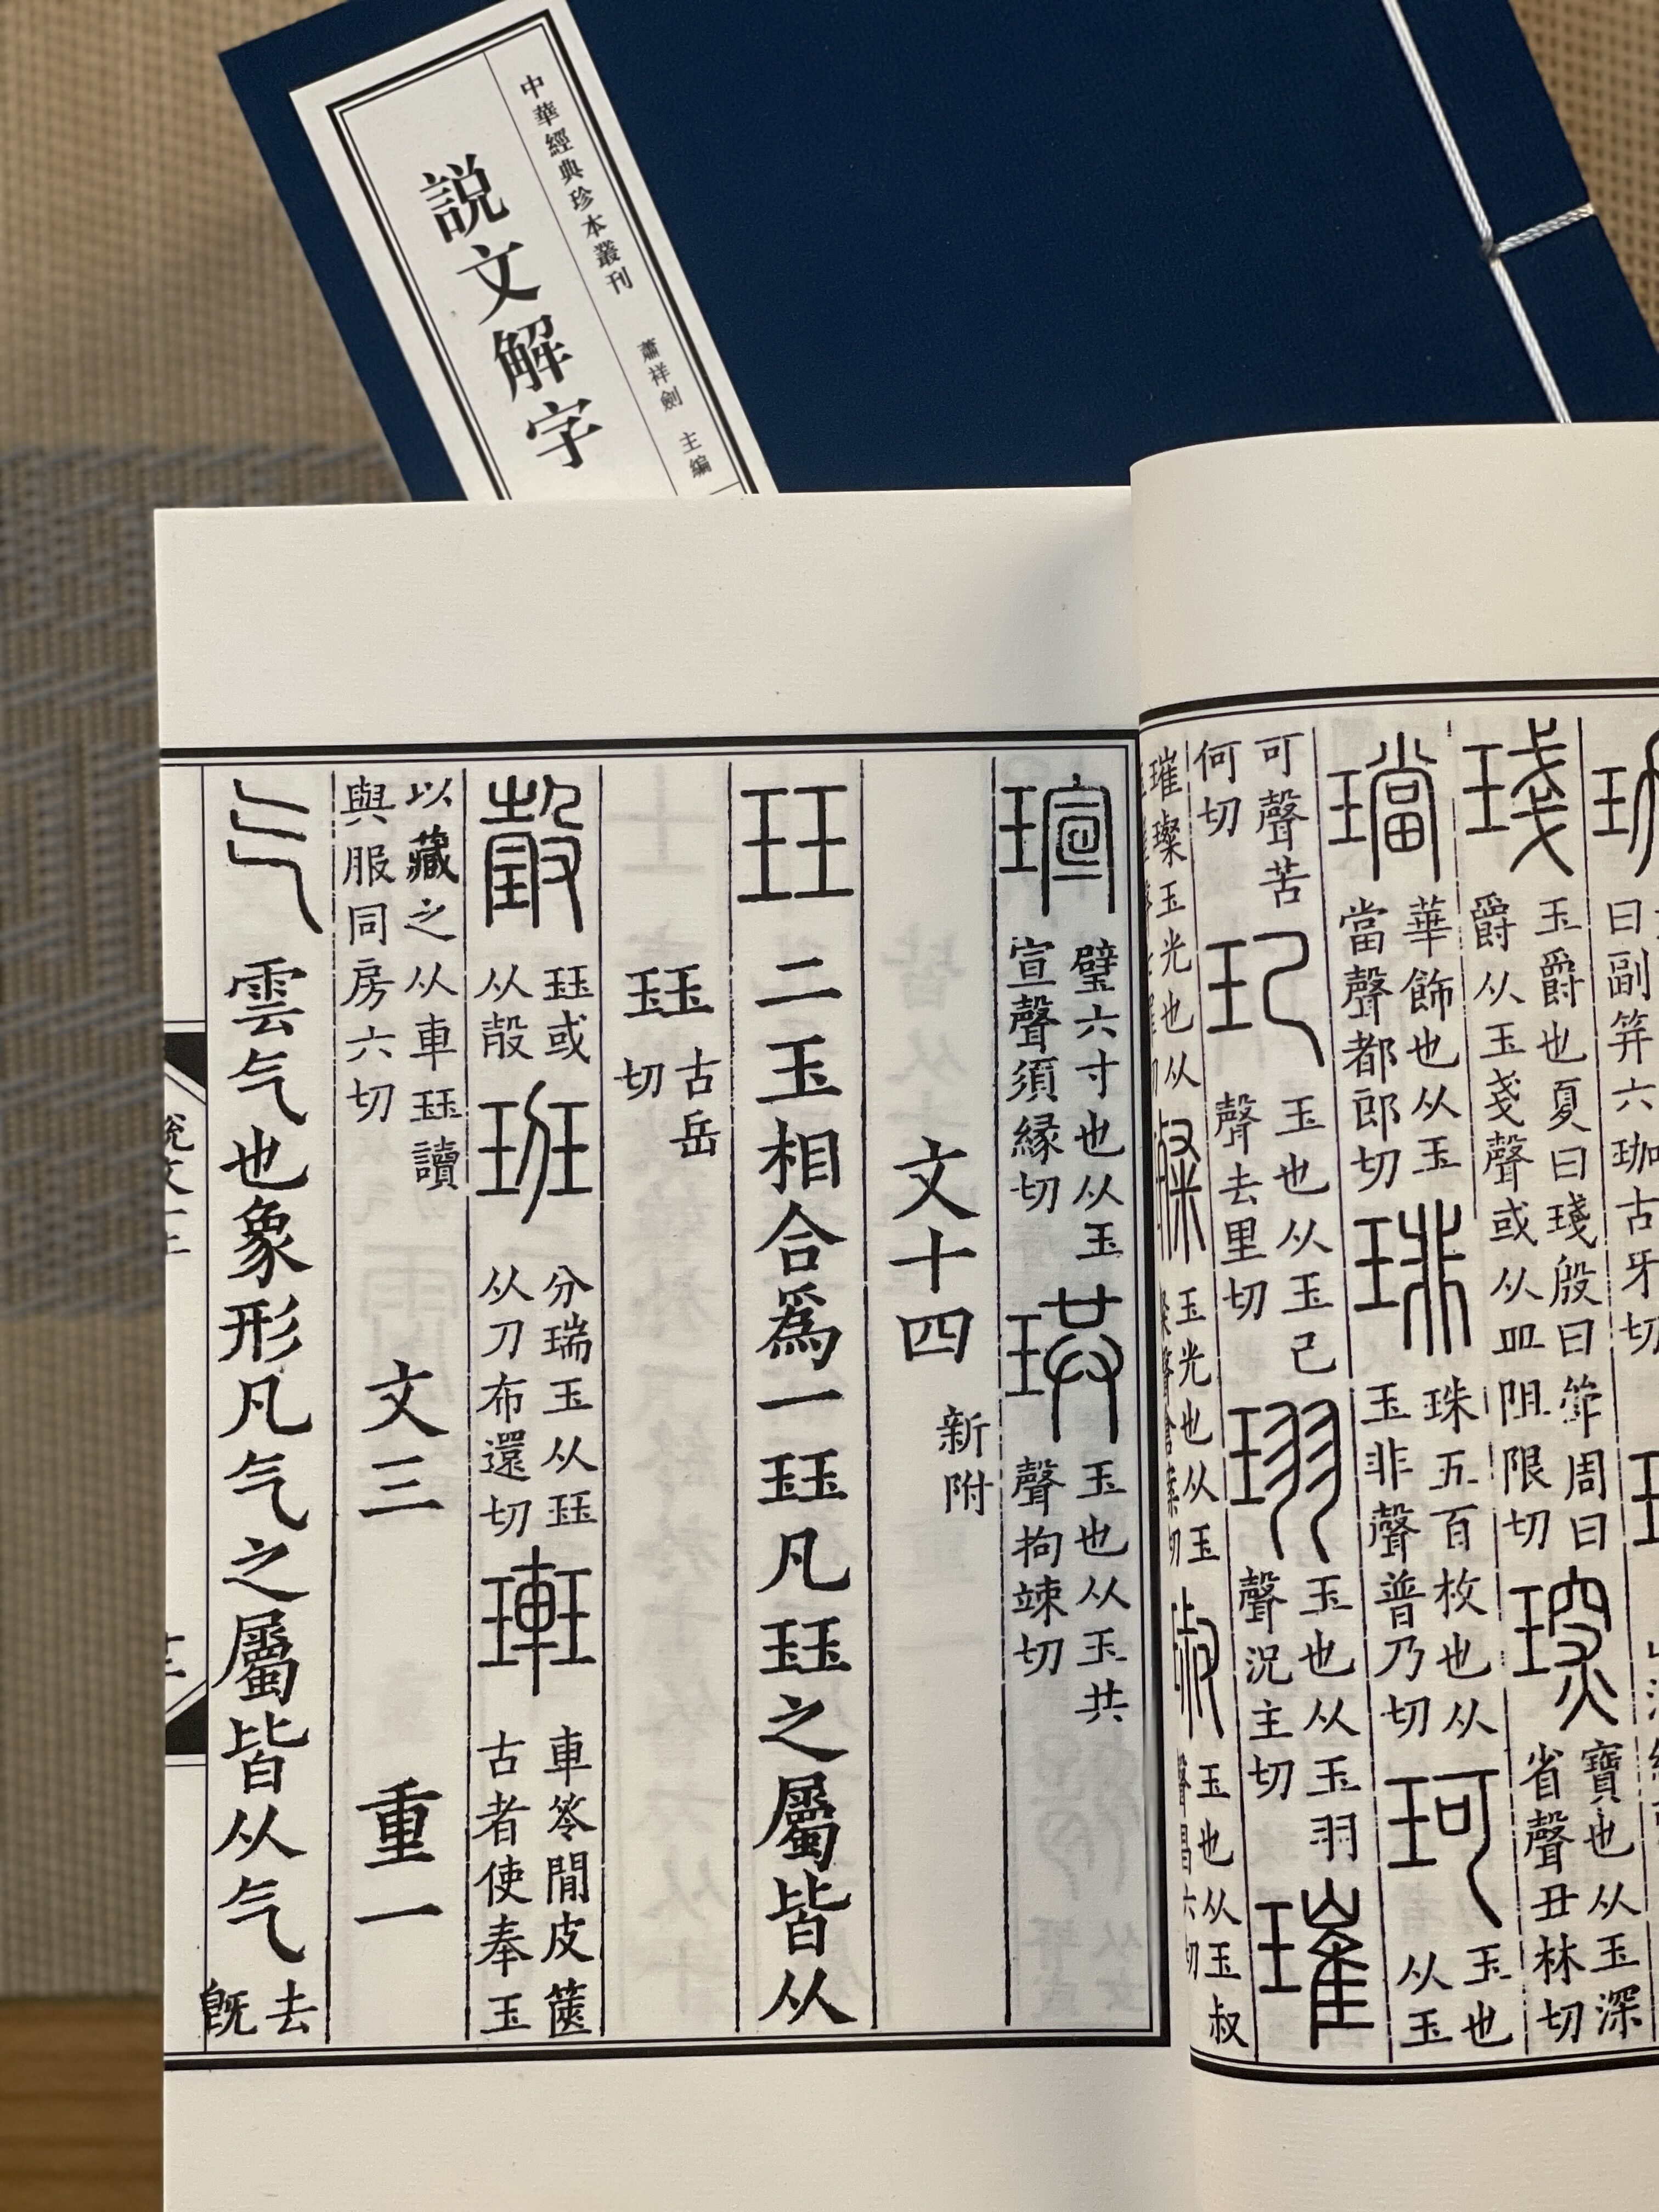 中華經典珍本叢刊 蕭祥劍 主編
説文解字
曰副笄六珈古牙切
琖 玉爵也夏曰琖殷曰斝周曰爵从玉戔聲或从皿阻限切 琛 寶也从玉深省聲丑林切
璫 華飾也从玉當聲都郎切 琲 珠五百枚也从玉非聲普乃切 珂 玉也从玉
可聲苦何切 玘 玉也从玉己聲去里切 珝 玉也从玉羽聲況主切 璀
璀璨玉光也从 璨 玉光也从玉粲聲倉案切 琡 玉也从玉叔聲昌六切
瑄 璧六寸也从玉宣聲須緣切 珙 玉也从玉共聲拘竦切
文十四 新附
玨 二玉相合爲一玨凡玨之屬皆从
玨 古岳切
瑴 玨或从㱿 班 分瑞玉从玨从刀布還切 𨌺 車笭閒皮篋古者使奉玉
以藏之从車玨讀與服同房六切 文三 重一
气 雲气也象形凡气之屬皆从气 去旣
説文一上